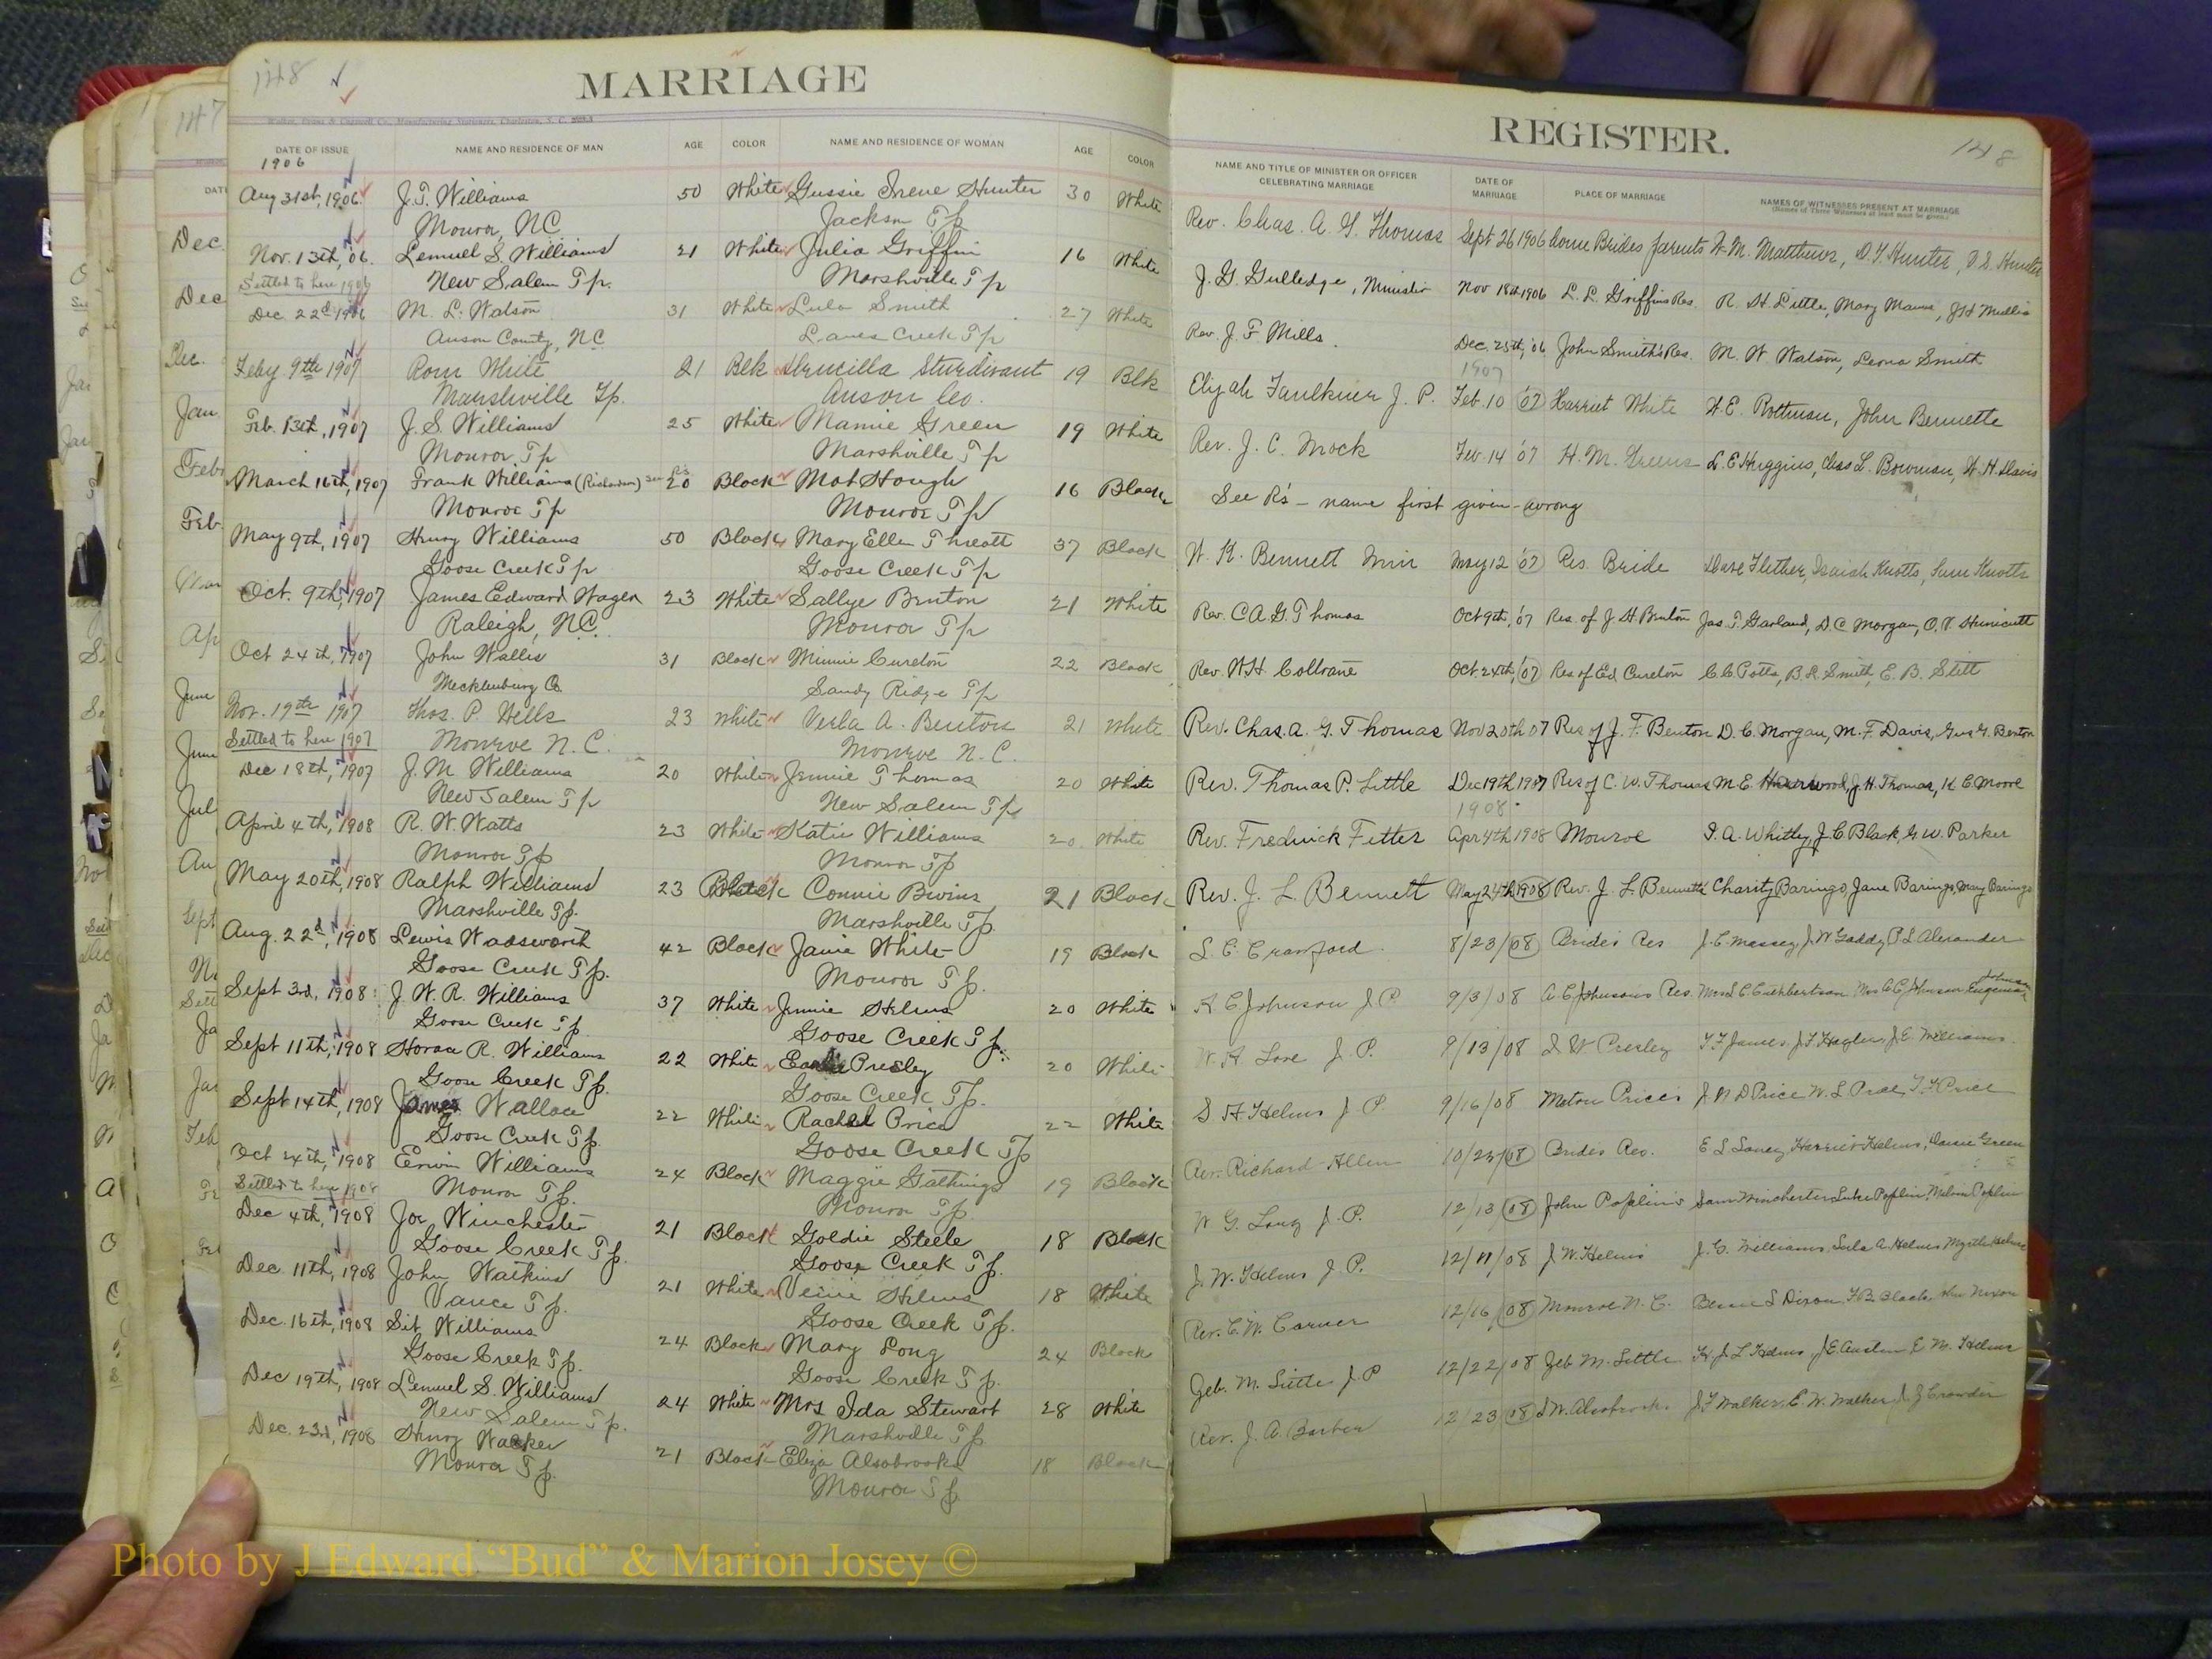 148
MARRIAGE
147
DATE OF ISSUE NAME AND RESIDENCE OF MAN AGE COLOR NAME AND RESIDENCE OF WOMAN AGE COLOR
1906
Aug 31st, 1906 J.T. Williams 50 White Gussie Irene Hunter 30 White
Monroe, NC Jackson Tp
Nov. 13th, 06. Lemuel S. Williams 21 White Julia Griffin 16 White
Settled to here 1906 New Salem Tp. Marshville Tp
Dec. 22d 1906 M. L. Watson 31 White Lula Smith 27 White
Anson County, NC Lanes Creek Tp
Feby 9th 1907 Rom White 21 Blk Drucilla Sturdivant 19 Blk
Marshville Tp. Anson Co.
Feb. 13th, 1907 J. S. Williams 25 White Mamie Green 19 White
Monroe Tp Marshville Tp
March 16th, 1907 Frank Williams (Richardson) See R's 20 Black Mat Hough 16 Black
Monroe Tp Monroe Tp
May 9th, 1907 Henry Williams 50 Black Mary Ellen Threatt 37 Black
Goose Creek Tp Goose Creek Tp
Oct. 9th, 1907 James Edward Wager 23 White Sallye Benton 21 White
Raleigh, NC. Monroe Tp
Oct 24th, 1907 John Wallis 31 Black Minnie Cureton 22 Black
Mecklenburg Co. Sandy Ridge Tp
Nov. 19th 1907 Thos. P. Wells 23 White Verla A. Benton 21 White
Settled to here 1907 Monroe N.C. Monroe N.C.
Dec 18th, 1907 J. M. Williams 20 White Jennie Thomas 20 White
New Salem Tp New Salem Tp
April 4th, 1908 R. W. Watts 23 White Katie Williams 20 White
Monroe Tp Monroe Tp
May 20th, 1908 Ralph Williams 23 Black Connie Bivins 21 Black
Marshville Tp. Marshville Tp.
Aug. 22d, 1908 Lewis Wadsworth 42 Black Janie White 19 Black
Goose Creek Tp. Monroe Tp.
Sept 3rd, 1908 J. W. R. Williams 37 White Jennie Helms 20 White
Goose Creek Tp. Goose Creek Tp.
Sept 11th, 1908 Horace R. Williams 22 White Presley 20 White
Goose Creek Tp. Goose Creek Tp.
Sept 14th, 1908 James Wallace 22 White Rachel Price 22 White
Goose Creek Tp. Goose Creek Tp
Oct 24th, 1908 Erwin Williams 24 Black Maggie Gathings 19 Black
Settled to here 1908 Monroe Tp. Monroe Tp.
Dec 4th, 1908 Joe Winchester 21 Black Goldie Steele 18 Black
Goose Creek Tp. Goose Creek Tp.
Dec. 11th, 1908 John Watkins 21 White Helms 18 White
Vance Tp. Goose Creek Tp.
Dec. 16th, 1908 Sit Williams 24 Black Mary Long 24 Black
Goose Creek Tp. Goose Creek Tp.
Dec 19th, 1908 Lemuel S. Williams 24 White Mrs Ida Stewart 28 White
New Salem Tp. Marshville Tp
Dec. 23rd, 1908 Henry Walker 21 Black Eliza Alsobrooks 18 Black
Monroe Tp. Monroe Tp
REGISTER.
148
NAME AND TITLE OF MINISTER OR OFFICER CELEBRATING MARRIAGE DATE OF MARRIAGE PLACE OF MARRIAGE NAMES OF WITNESSES PRESENT AT MARRIAGE
(Names of Three Witnesses at least must be given.)
Rev. Chas. A. G. Thomas Sept 26 1906 home Brides parents W. M. Matthews, D. T. Hunter, D. S. Hunter
J. G. Gulledge, Minister Nov 18th 1906 L. L. Griffins Res. R. H. Little, Mary Manus, J H Mullis
Rev. J. F. Mills. Dec. 25th, 06 John Smith's Res. M. W. Watson, Leona Smith
1907
Elijah Faulkner J. P. Feb. 10 07 Harriet White W. E. Rottman, John Bennette
Rev. J. C. Mock Feb. 14 07 H. M. Greens L. E Huggins, Chas L. Bowman, W. H. Davis
See R's - name first given - wrong
W. K. Bennett Min May 12 07 Res. Bride Dave Flether, Isaiah Knotts, Knotts
Rev. C A G. Thomas Oct 9th, 07 Res. of J H. Benton Jas. T. Garland, D. C Morgan, O. V. Hunicutt
Rev. W H. Coltrane Oct. 24th, 07 Res of Ed Cureton C. C. Potts, B. R. Smith, E. B. Stitt
Rev. Chas. A. G. Thomas Nov 20th 07 Res of J. F. Benton D. C. Morgan, M. F. Davis, Gus G. Benton
Rev. Thomas P. Little Dec 19th 1907 Res of C. W. Thomas M. E. Harwood, J. H. Thomas, K. C. Moore
1908
Rev. Fredrick Fetter Apr 4th 1908 Monroe S. A. Whitley, J. C. Black, G. W. Parker
Rev. J. L Bennett May 24th 1908 Rev. J. L. Bennetts Charity Baringo, Jane Baringo, May Baringo
S. C. Crawford 8/23/08 Brides Res J. C. Massey, J W Gaddy, P L Alexander
A C Johnson J P 9/3/08 A. C Johnsons Res. Mrs L C Cuthbertson Mrs A C Johnson Eugenia Johnson
W. H. Love J. P. 9/13/08 D W Presley T. F James, J. T. Haglers, J. E. Williams.
S. H. Helms J. P. 9/16/08 Moton Prices J. N. D Price W. L Price, T. F Price
Rev. Richard Allen 10/25/08 Brides Res. E. L Laney, Harriet Helms, Janie Green
W. G. Long J. P. 12/13 08 John Poplins Sam Winchester, Luke Poplin, Melvin Poplin
J. W. Helms J. P. 12/11/08 J. W. Helms J. G. Williams, Lula A. Helms, Myrtle Helms
Rev. C. W. Carver 12/16/08 Monroe N. C. S Dixon, F. B. Black, Nixon
Geb. M. Little J. P 12/22/08 Geb M. Little J. L. Helms, J. E. Austin, E. M. Helms
Rev. J. A. Barber 12/23 08 S. W. Alsobrooks J. F Walker, E. W. Walker, J. G Crowder
Photo by J Edward “Bud” & Marion Josey ©